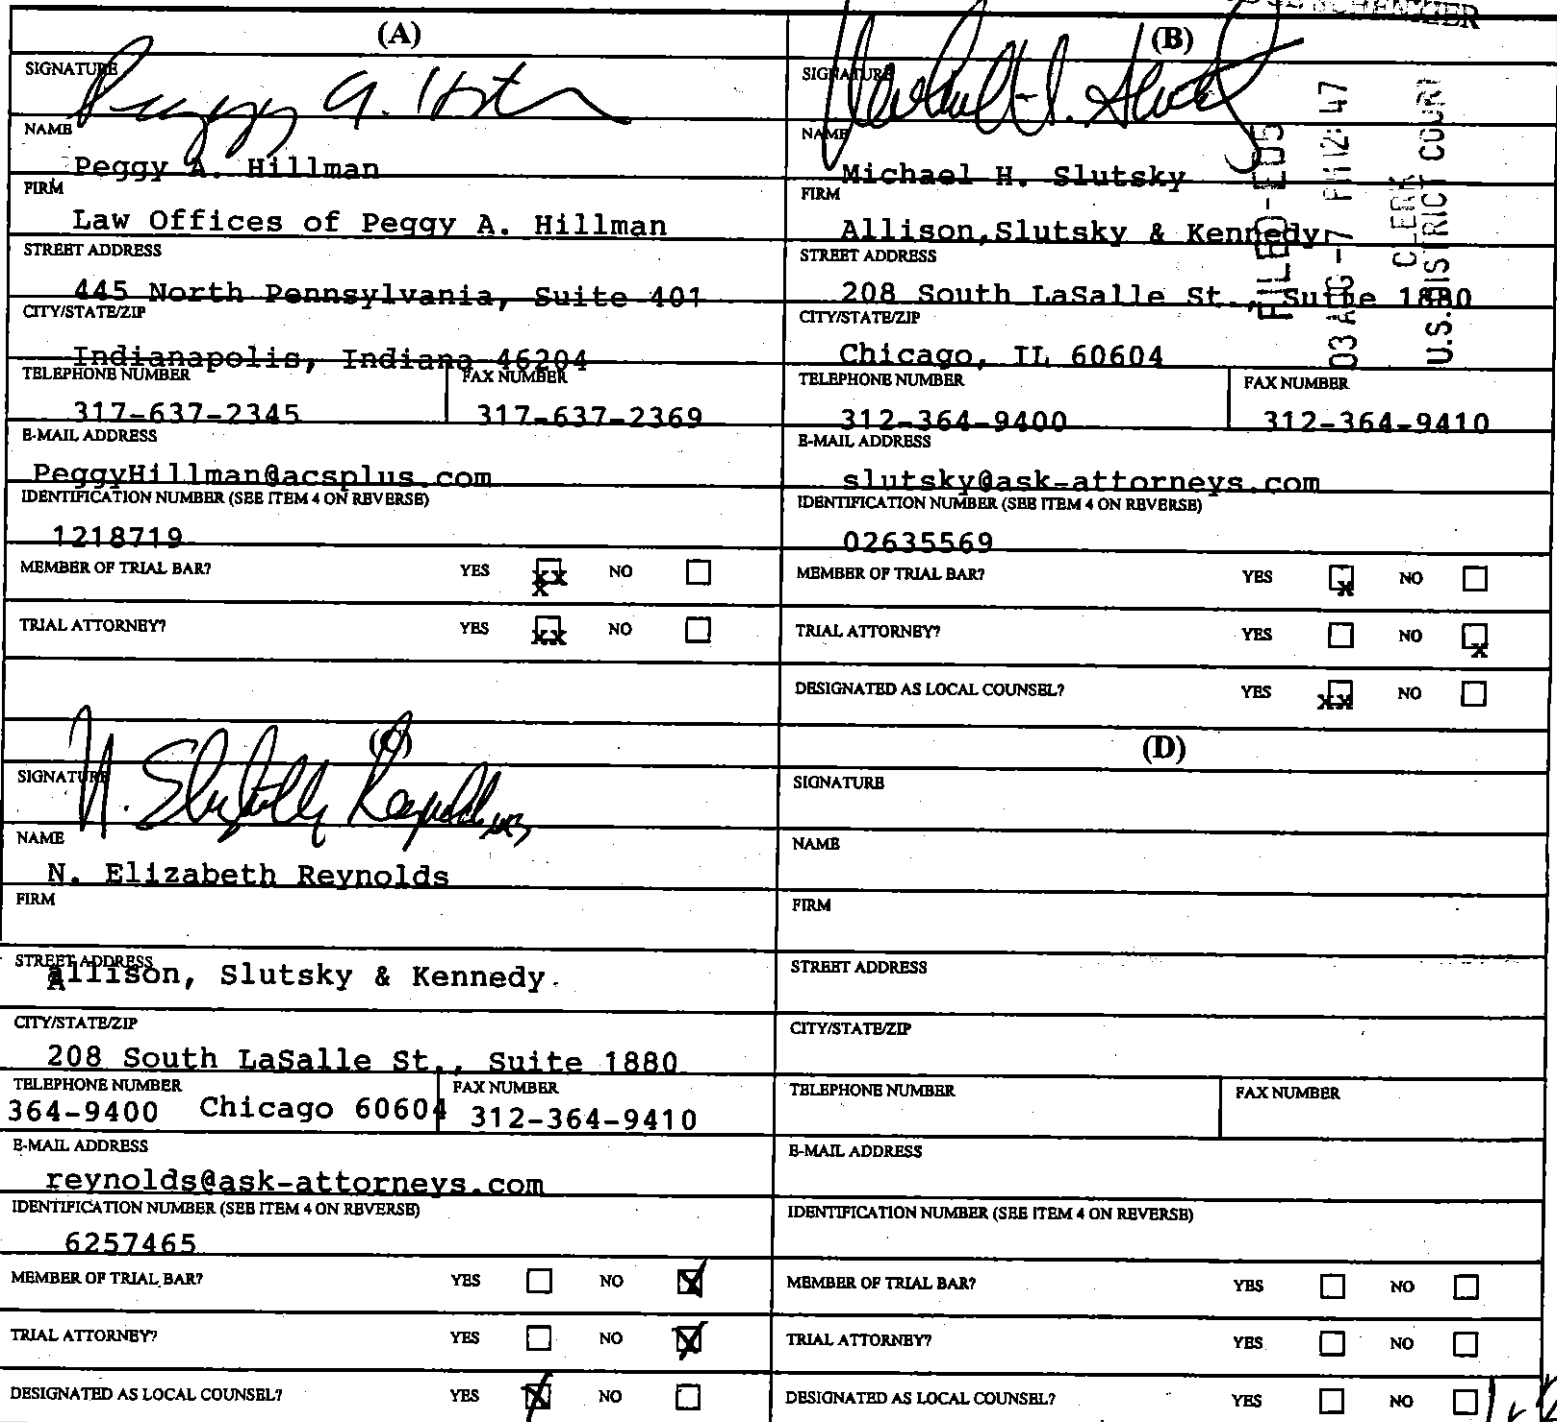 (A)
SIGNATURE
NAME
Peggy A. Hillman
FIRM
Law Offices of Peggy A. Hillman
STREET ADDRESS
445 North Pennsylvania, Suite 401
CITY/STATE/ZIP
Indianapolis, Indiana 46204
TELEPHONE NUMBER FAX NUMBER
317-637-2345 317-637-2369
E-MAIL ADDRESS
PeggyHillman@acsplus.com
IDENTIFICATION NUMBER (SEE ITEM 4 ON REVERSE)
1218719
MEMBER OF TRIAL BAR? YES xx x NO
TRIAL ATTORNEY? YES xx NO
(B)
SIGNATURE
NAME
Michael H. Slutsky
FIRM
Allison,Slutsky & Kennedy
STREET ADDRESS
208 South LaSalle St., Suite 1880
CITY/STATE/ZIP
Chicago, IL 60604
TELEPHONE NUMBER FAX NUMBER
312-364-9400 312-364-9410
E-MAIL ADDRESS
slutsky@ask-attorneys.com
IDENTIFICATION NUMBER (SEE ITEM 4 ON REVERSE)
02635569
MEMBER OF TRIAL BAR? YES x NO
TRIAL ATTORNEY? YES NO x
DESIGNATED AS LOCAL COUNSEL? YES xx NO
FILED-ED5
03 AUG -7 PM 12:47
CLERK
U.S. DISTRICT COURT
(C)
SIGNATURE
N. Elizabeth Reynolds
NAME
N. Elizabeth Reynolds
FIRM
STREET ADDRESS
Allison, Slutsky & Kennedy
CITY/STATE/ZIP
208 South LaSalle St., Suite 1880
TELEPHONE NUMBER FAX NUMBER
364-9400 Chicago 60604 312-364-9410
E-MAIL ADDRESS
reynolds@ask-attorneys.com
IDENTIFICATION NUMBER (SEE ITEM 4 ON REVERSE)
6257465
MEMBER OF TRIAL BAR? YES NO X
TRIAL ATTORNEY? YES NO X
DESIGNATED AS LOCAL COUNSEL? YES X NO
(D)
SIGNATURE
NAME
FIRM
STREET ADDRESS
CITY/STATE/ZIP
TELEPHONE NUMBER FAX NUMBER
E-MAIL ADDRESS
IDENTIFICATION NUMBER (SEE ITEM 4 ON REVERSE)
MEMBER OF TRIAL BAR? YES NO
TRIAL ATTORNEY? YES NO
DESIGNATED AS LOCAL COUNSEL? YES NO